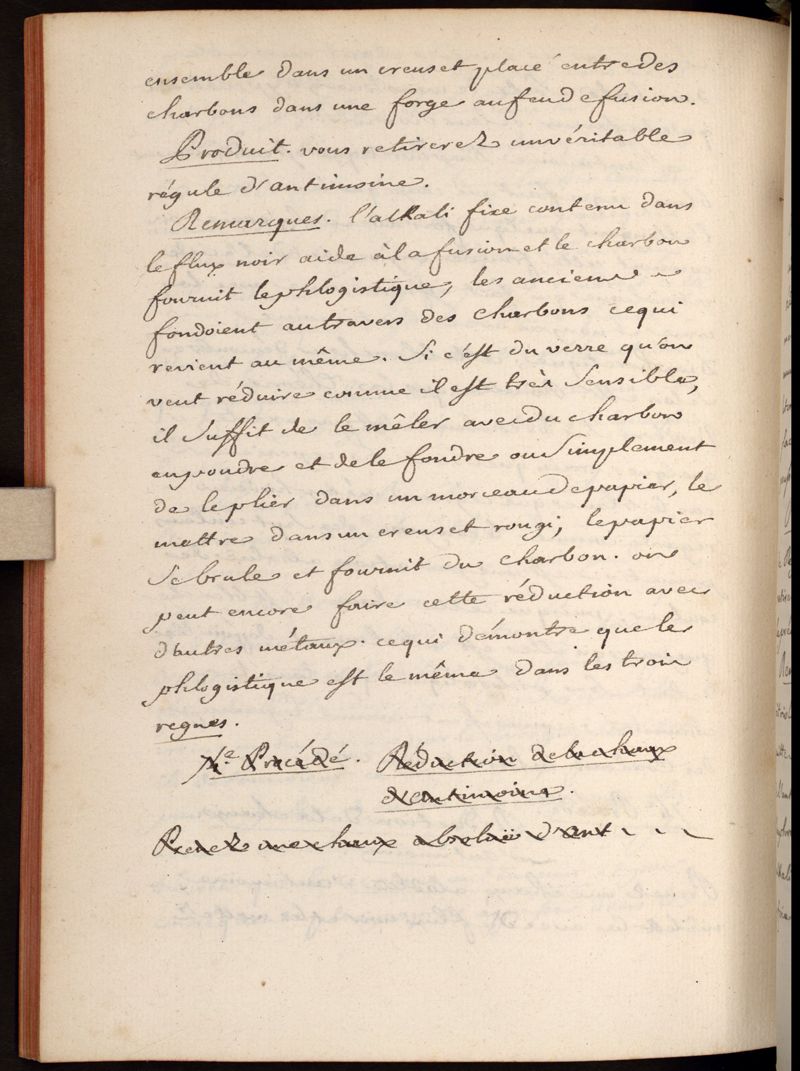 ensemble dans un creuset placé entre des
charbons dans une forge au feu de fusion.
Produit. vous retirerez un véritable
régule d'antimoine.
Remarques. l'alkali fixe contenu dans
le flux noir aide à la fusion et le charbon
fournit le phlogistique, les anciens
fondoient au travers des charbons ce qui
revient au même. Si c'est du verre qu'on
veut réduire comme il est très sensible,
il suffit de le mêler avec du charbon
en poudre et de le fondre ou simplement
de le plier dans un morceau de papier, le
mettre dans un creuset rougi, le papier
se brule et fournit du charbon. on
peut encore faire cette réduction avec
d'autres métaux. ce qui démontre que le
phlogistique est le même dans les trois
regnes.
Procédé. Réduction de la chaux
d'antimoine.
Prenez une chaux absolue d'ant